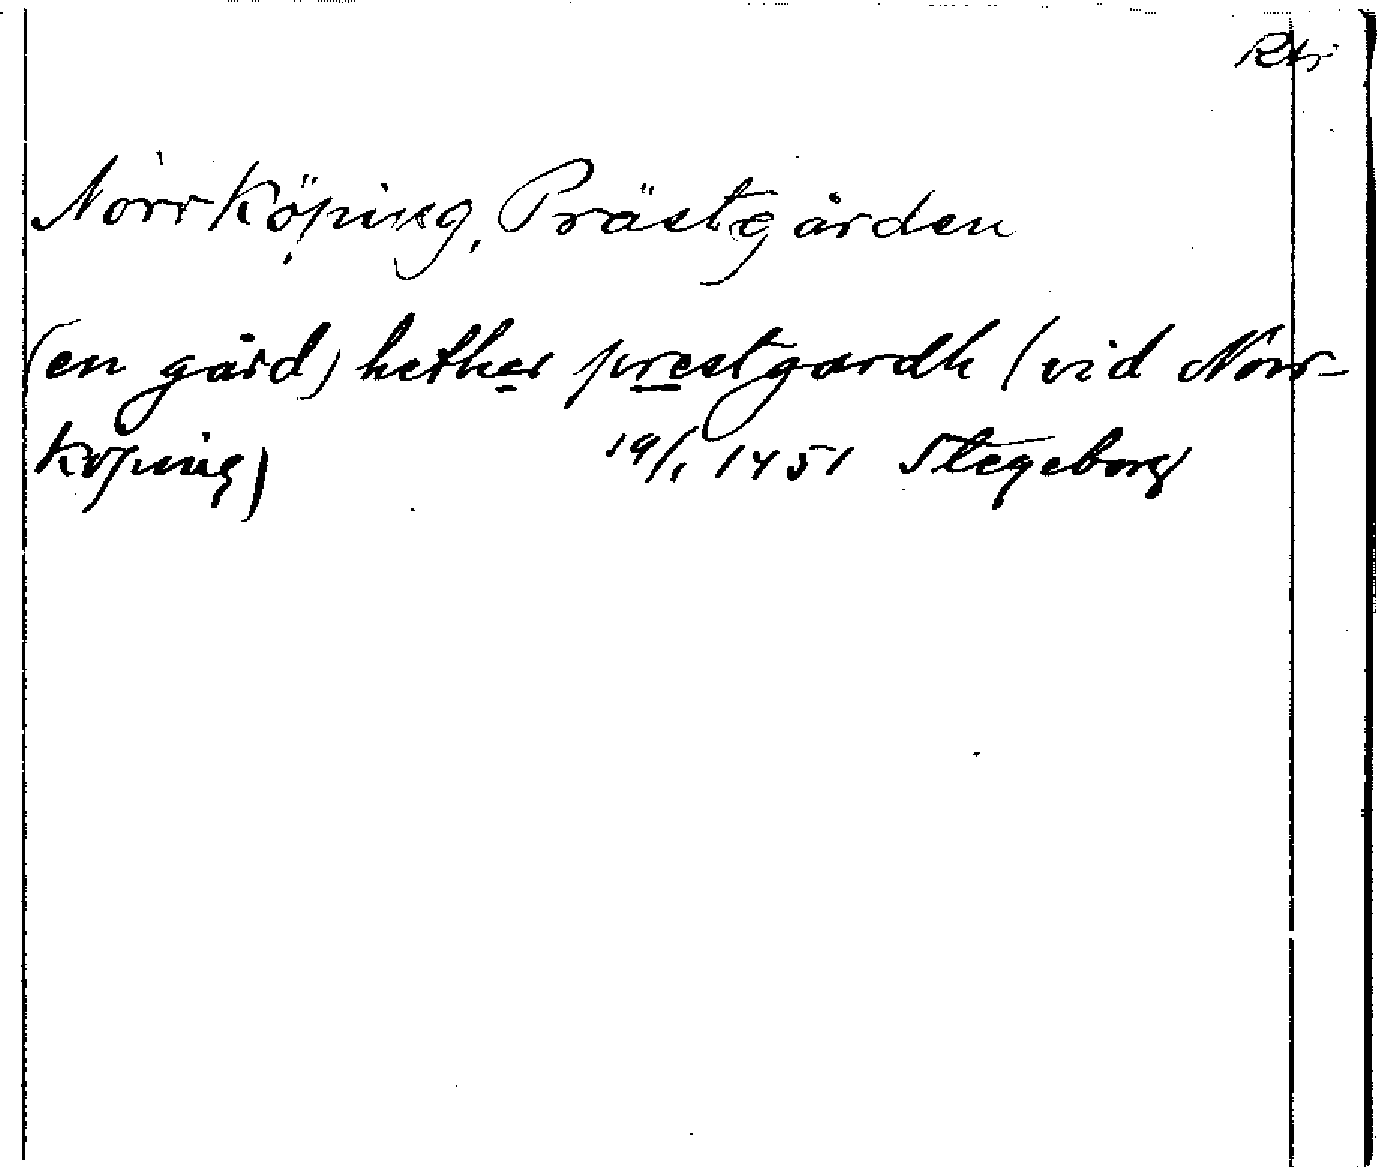 Norrköping, Prästgården
(en gård) hether prestgardh (vid Norr-
köping) 19/1 1451 Stegeborg